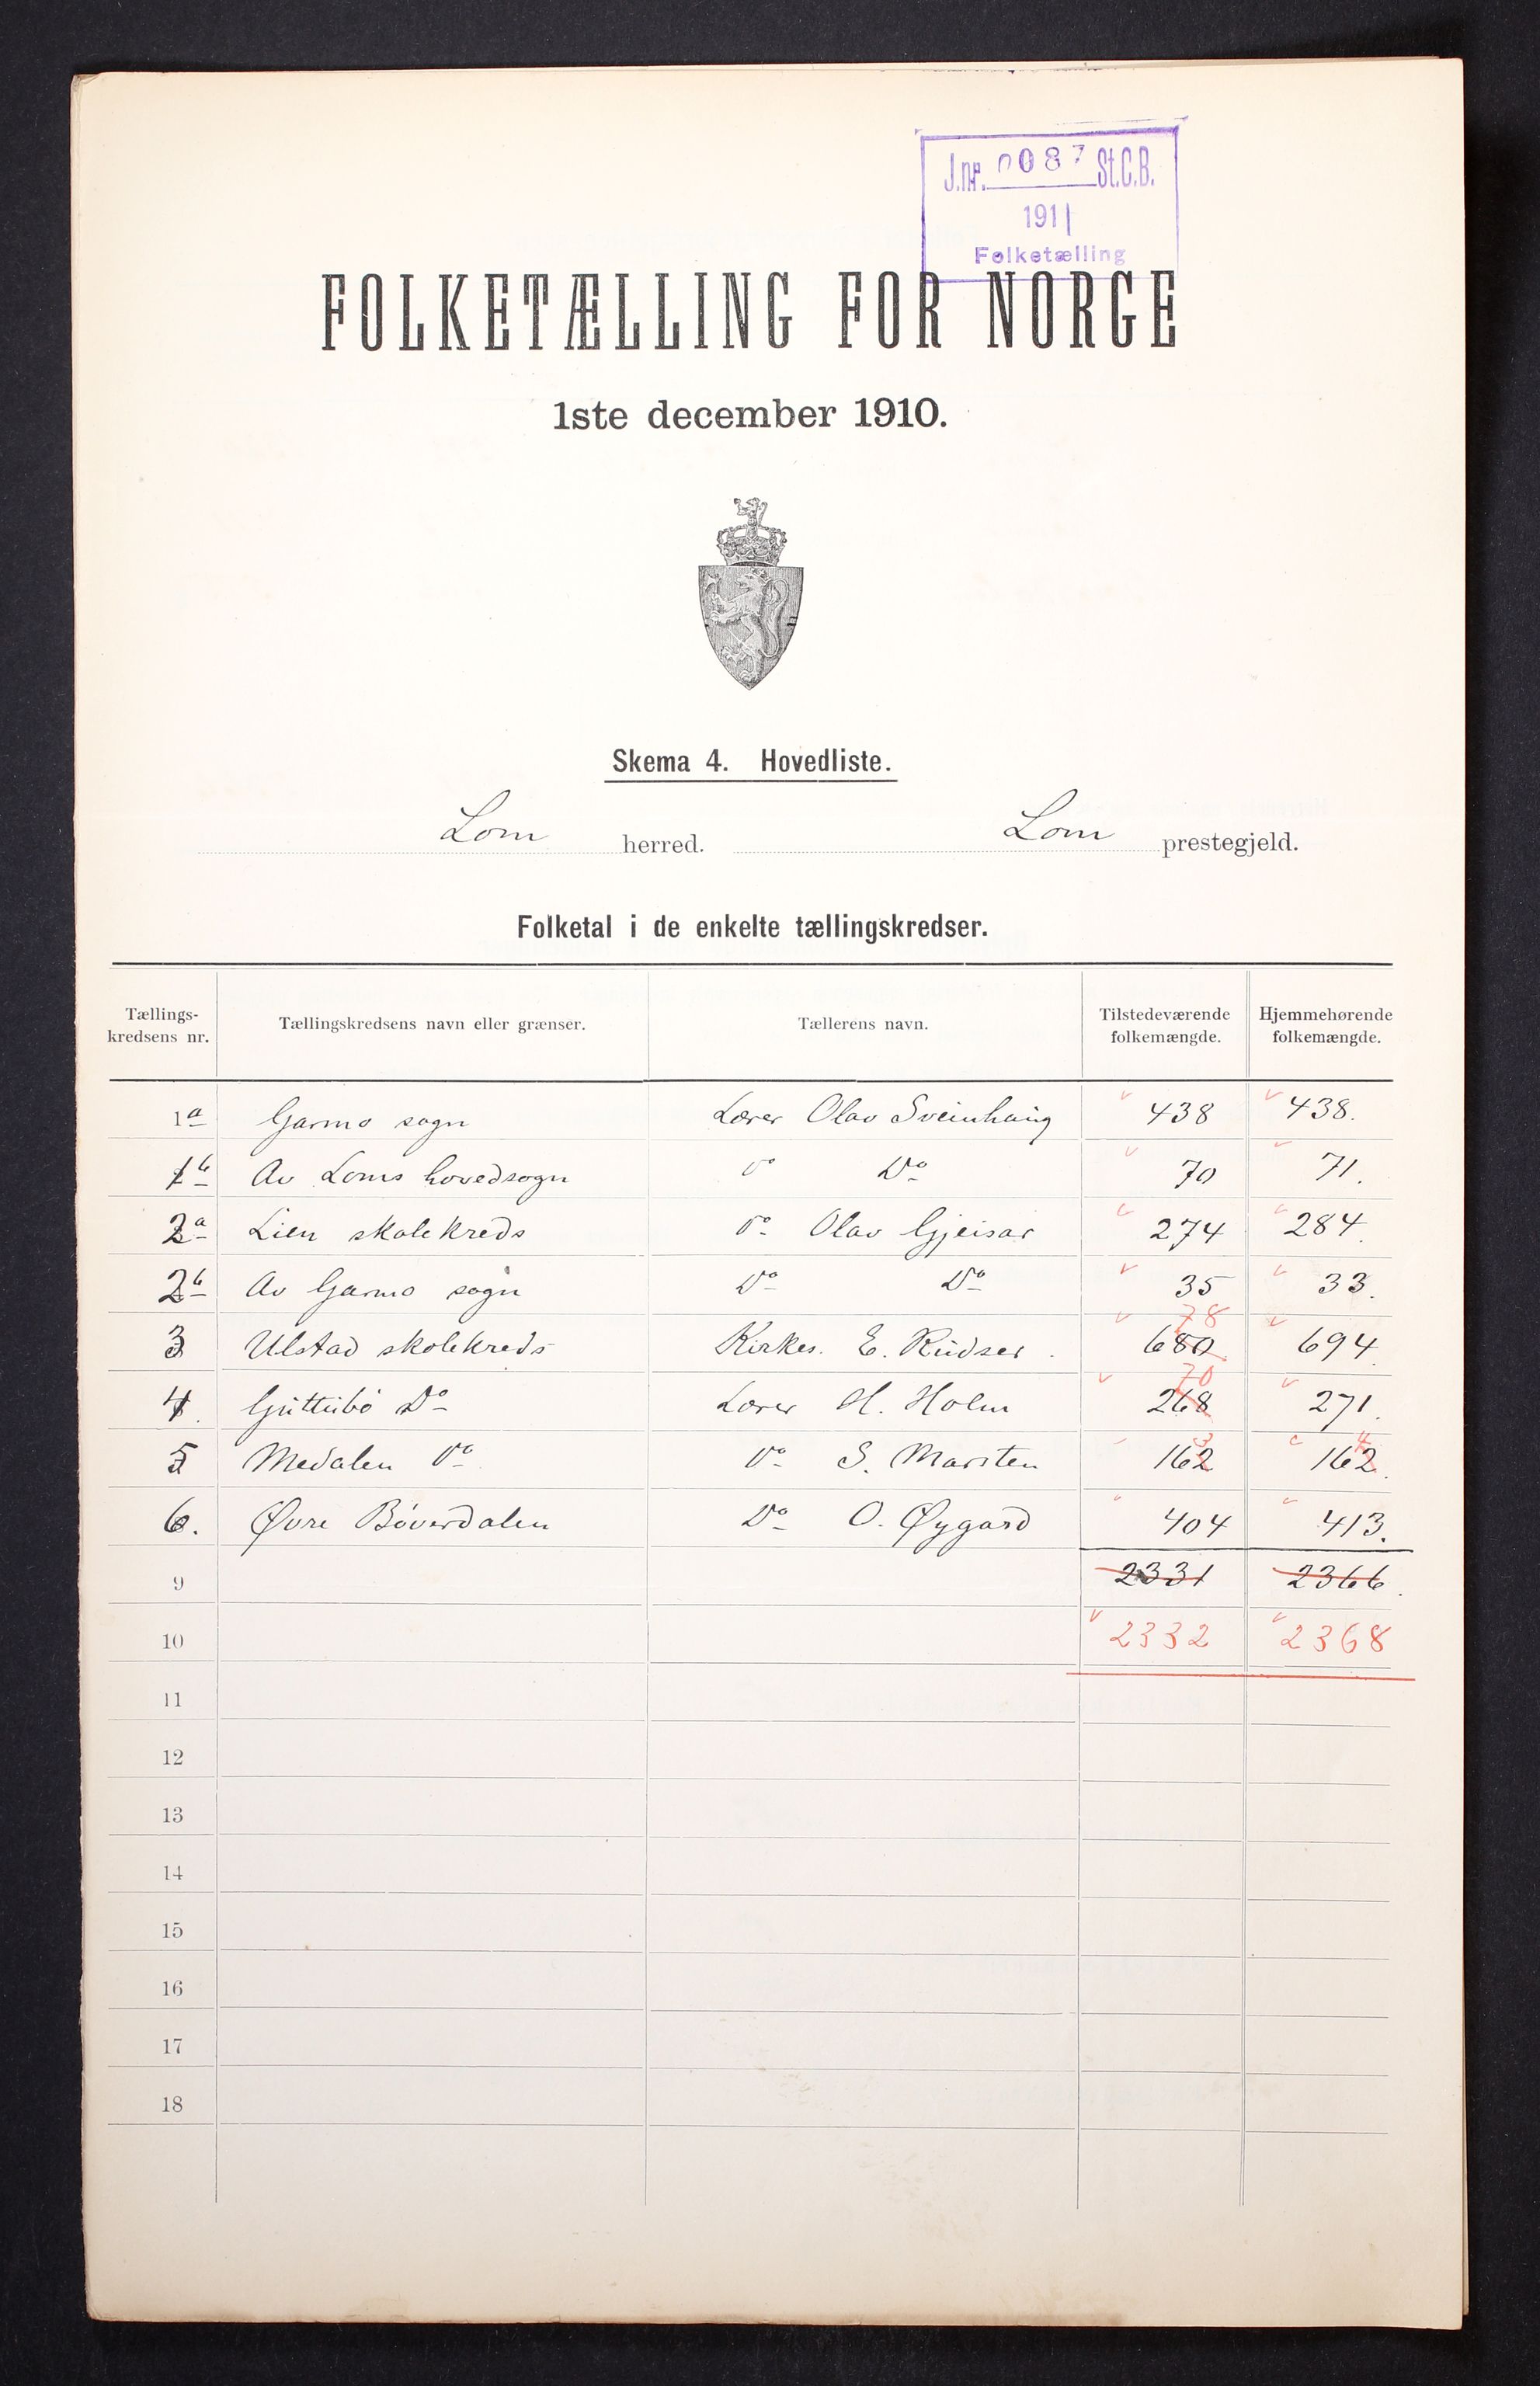 J.nr. 0087 St.C.B.
1911
Folketælling
FOLKETÆLLING FOR NORGE
1ste december 1910.
Skema 4. Hovedliste.
Lom herred. Lom prestegjeld.
Folketal i de enkelte tællingskredser.
Tællings-kredsens nr. Tællingskredsens navn eller grænser. Tællerens navn. Tilstedeværende folkemængde. Hjemmehørende folkemængde.
1a Garmo sogn Lærer Olav Sveinhaug 438 438.
1b Av Loms hovedsogn Do Do 70 71.
2a Lien skolekreds Do Olav Gjeisar 274 284.
2b Av Garmo sogn Do Do 35 33.
78
3 Ulstad skolekreds Kirkes. E. Rudser. 680 694.
70
4. Guttubø Do Lærer H. Holm 268 271.
3 4
5 Medalen Do Do S. Marsten 162 162.
6. Øvre Bøverdalen Do O. Øygard 404 413.
9 2331 2366.
10 2332 2368
11
12
13
14
15
16
17
18